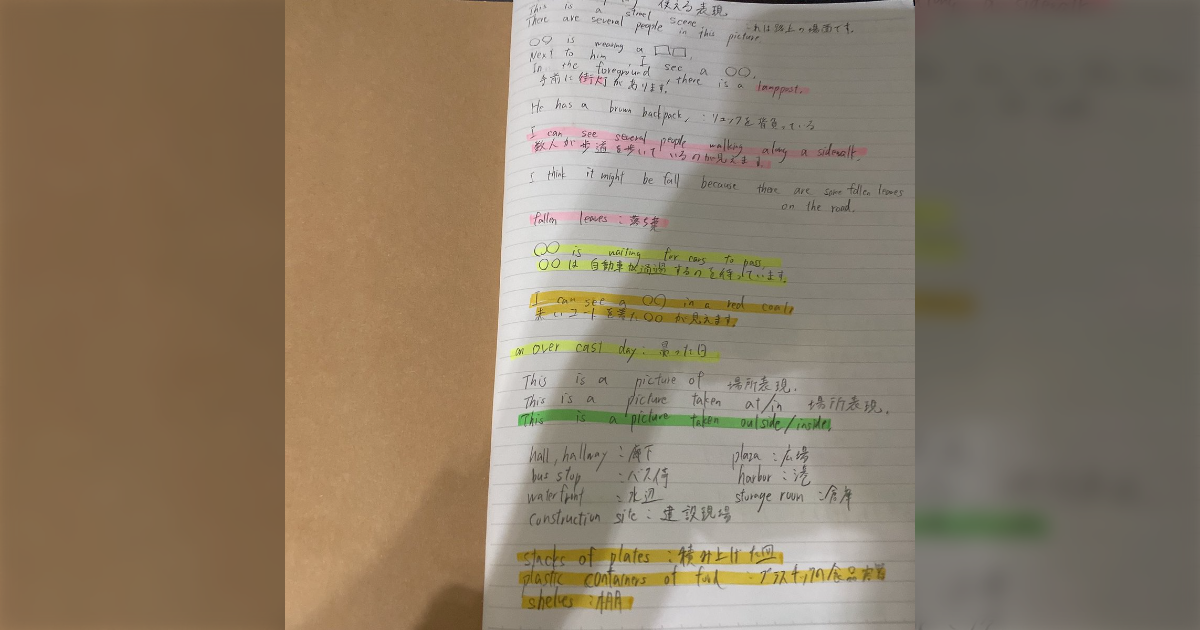 使える表現
This is a street scene. これは路上の場面です。
There are several people in this picture
○○ is wearing a □□.
Next to him, I see a ○○.
In the foreground, there is a lamppost.
手前に街灯があります。
He has a brown backpack, : リュックを背負っている
I can see several people walking along a sidewalk.
数人が歩道を歩いているのが見えます。
I think it might be fall because there are some fallen leaves
on the road.
fallen leaves : 落ち葉
○○ is waiting for cars to pass.
○○は自動車が通過するのを待っています。
I can see a ○○ in a red coat.
赤いコートを着た○○が見えます。
an over cast day : 曇った日
This is a picture of 場所表現.
This is a picture taken at/in 場所表現.
This is a picture taken outside/inside.
hall, hallway : 廊下 plaza : 広場
bus stop : バス停 harbor : 港
waterfront : 水辺 storage room : 倉庫
construction site : 建設現場
stacks of plates : 積み上げた皿
plastic containers of food : プラスチックの食品容器
shelves : 棚